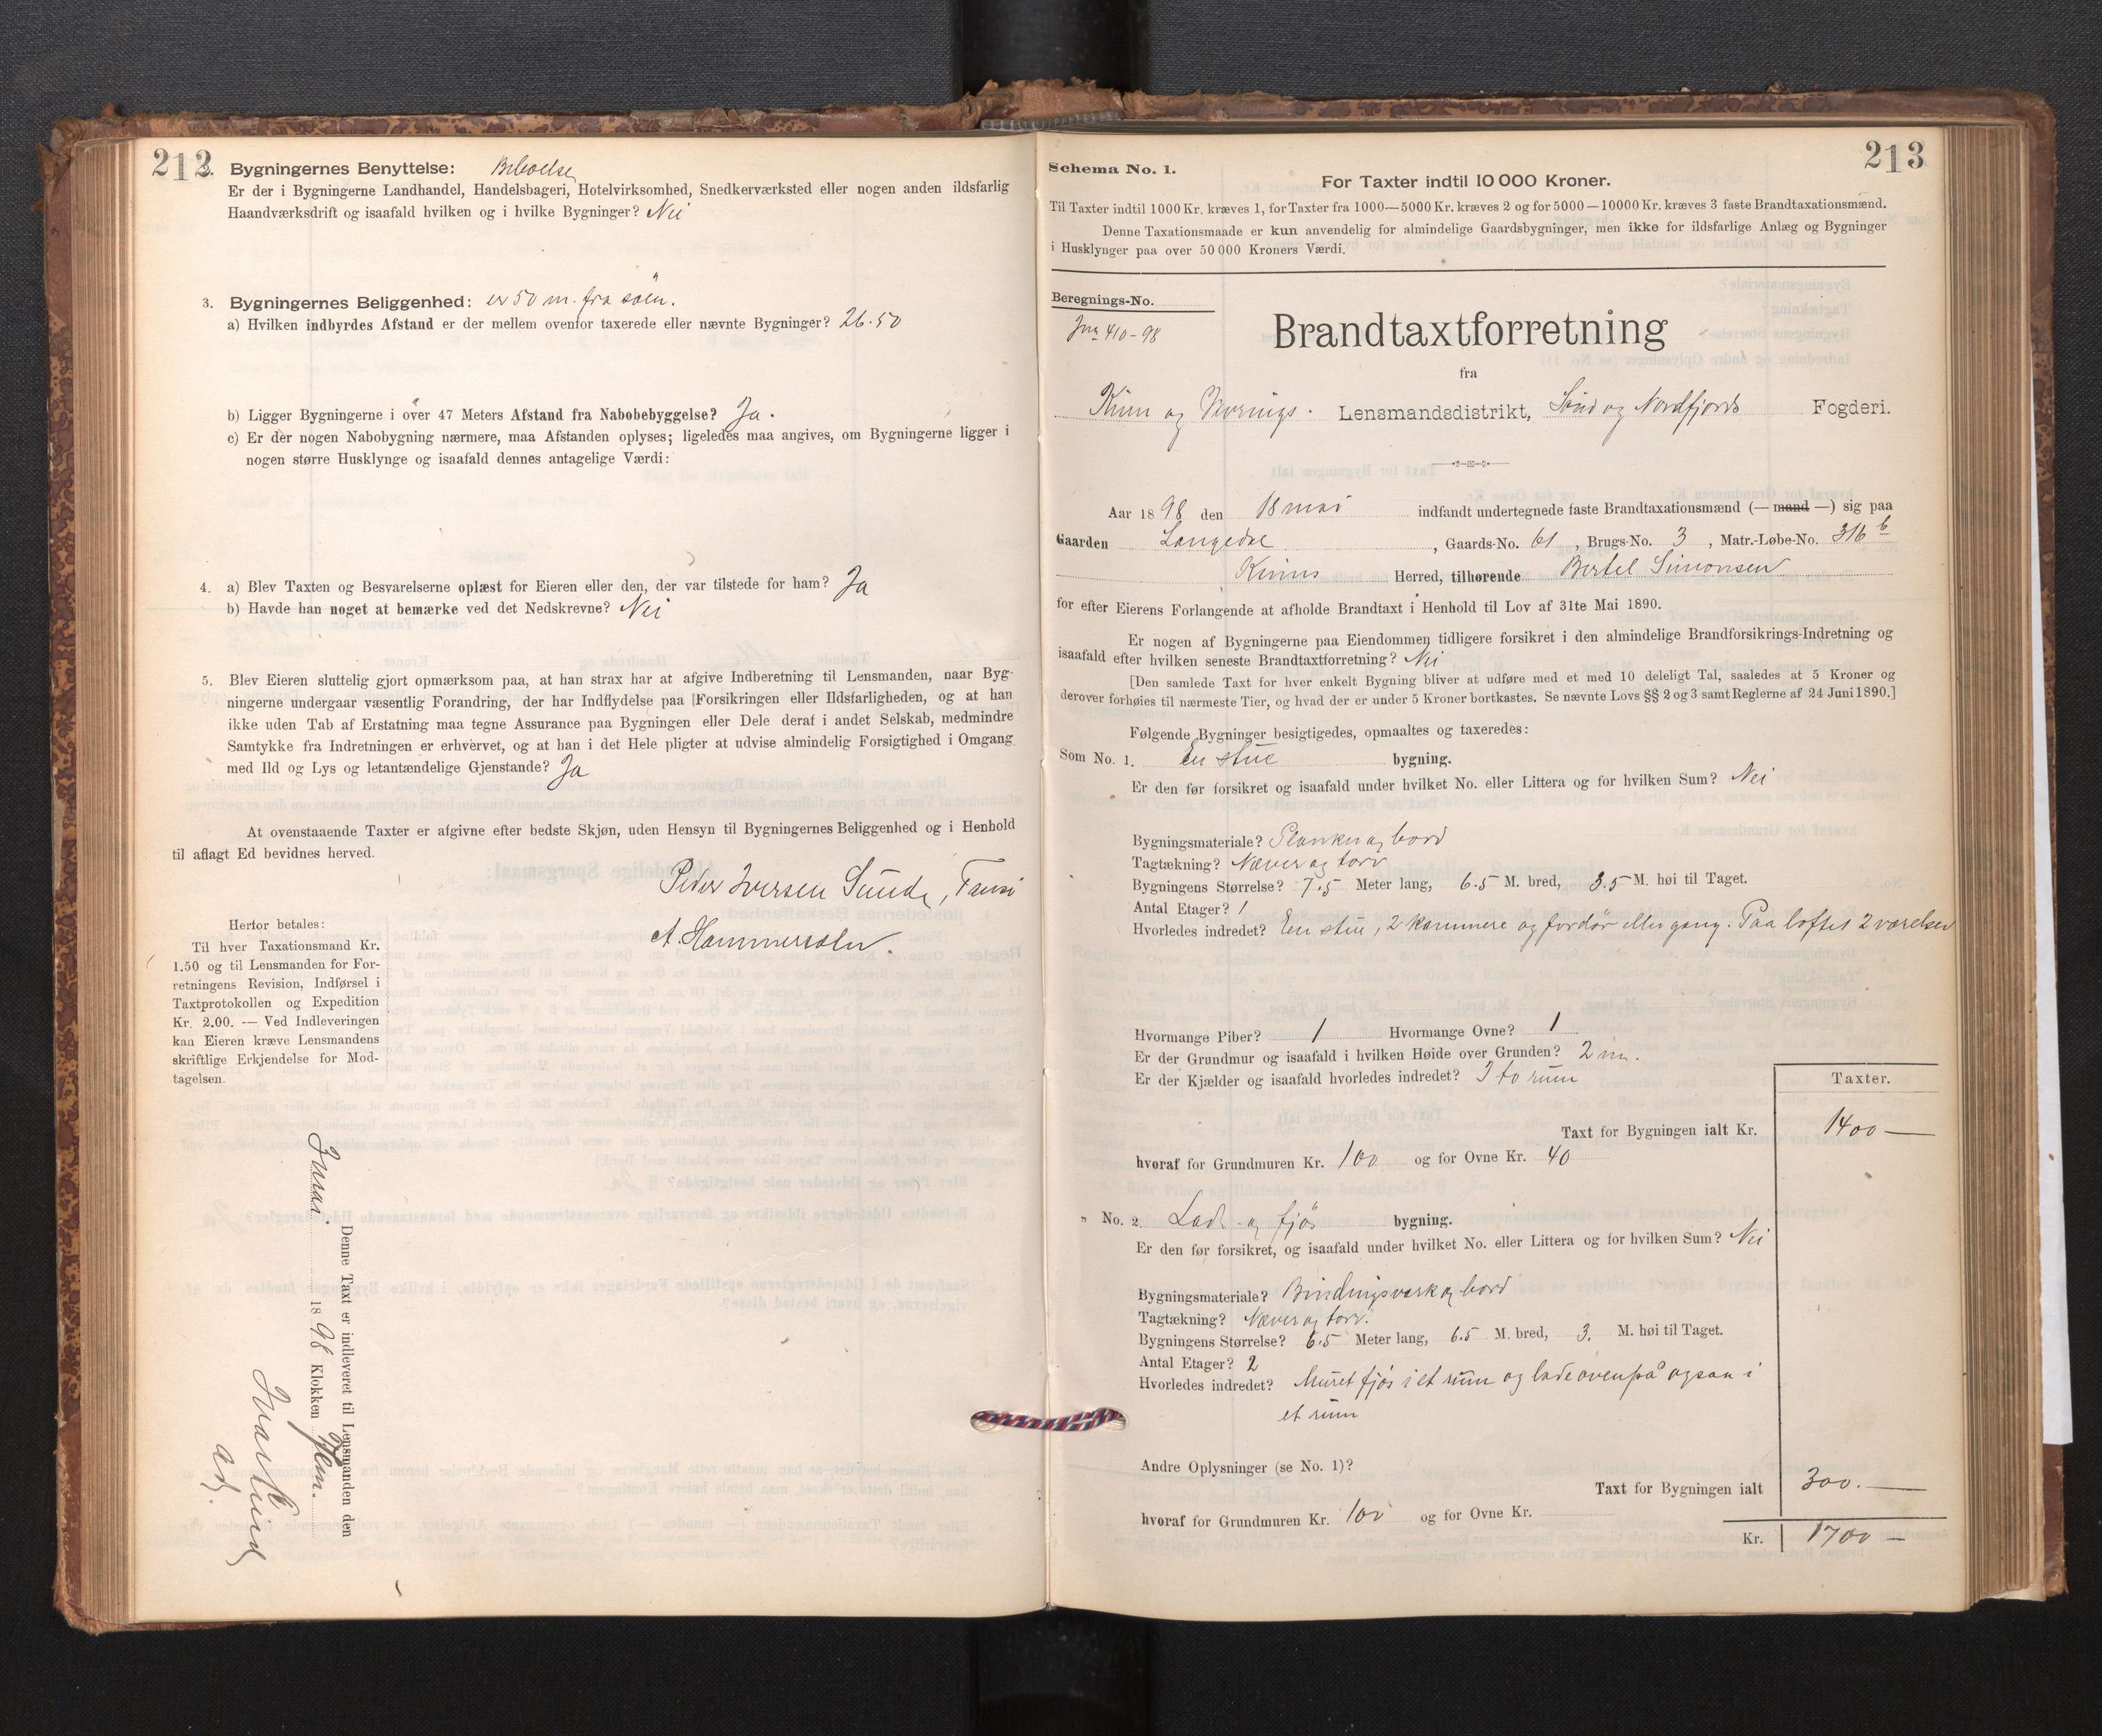 212
2. Bygningernes Benyttelse: Beboelse
Er der i Bygningerne Landhandel, Handelsbageri, Hotelvirksomhed, Snedkerværksted eller nogen anden ildsfarlig
Haandværksdrift og isaafald hvilken og i hvilke Bygninger? Nei
3. Bygningernes Beliggenhed: er 50 m. fra søen.
a) Hvilken indbyrdes Afstand er der mellem ovenfor taxerede eller nævnte Bygninger? 26.50
b) Ligger Bygningerne i over 47 Meters Afstand fra Nabobebyggelse? Ja.
c) Er der nogen Nabobygning nærmere, maa Afstanden oplyses; ligeledes maa angives, om Bygningerne ligger i
nogen større Husklynge og isaafald dennes antagelige Værdi:
4. a) Blev Taxten og Besvarelserne oplæst for Eieren eller den, der var tilstede for ham? Ja
b) Havde han noget at bemærke ved det Nedskrevne? Nei
5. Blev Eieren sluttelig gjort opmærksom paa, at han strax har at afgive Indberetning til Lensmanden, naar Byg-
ningerne undergaar væsentlig Forandring, der har Indflydelse paa Forsikringen eller Ildsfarligheden, og at han
ikke uden Tab af Erstatning maa tegne Assurance paa Bygningen eller Dele deraf i andet Selskab, medmindre
Samtykke fra Indretningen er erhvervet, og at han i det Hele pligter at udvise almindelig Forsigtighed i Omgang
med Ild og Lys og letantændelige Gjenstande? Ja
At ovenstaaende Taxter er afgivne efter bedste Skjøn, uden Hensyn til Bygningernes Beliggenhed og i Henhold
til aflagt Ed bevidnes herved.
Peder Iversen Sunde,
A. Hammersøen.
Herfor betales:
Til hver Taxationsmand Kr.
1.50 og til Lensmanden for For-
retningens Revision, Indførsel i
Taxtprotokollen og Expedition
Kr. 2.00. — Ved Indleveringen
kan Eieren kræve Lensmandens
skriftlige Erkjendelse for Mod-
tagelsen.
Denne Taxt er indleveret til Lensmanden den
1898 Klokken
213
Schema No. 1.
For Taxter indtil 10 000 Kroner.
Til Taxter indtil 1000 Kr. kræves 1, for Taxter fra 1000—5000 Kr. kræves 2 og for 5000—10000 Kr. kræves 3 faste Brandtaxationsmænd.
Denne Taxationsmaade er kun anvendelig for almindelige Gaardsbygninger, men ikke for ildsfarlige Anlæg og Bygninger
i Husklynger paa over 50 000 Kroners Værdi.
Beregnings-No.
Jno 410-98
Brandtaxtforretning
fra
Kinn og Lensmandsdistrikt, Sønd og Nordfjords Fogderi.
Aar 1898 den 18 mai indfandt undertegnede faste Brandtaxationsmænd (— mand —) sig paa
Gaarden Langedal, Gaards-No. 61, Brugs-No. 3, Matr.-Løbe-No. 316 b
Kinns Herred, tilhørende Bertel Simonsen
for efter Eierens Forlangende at afholde Brandtaxt i Henhold til Lov af 31te Mai 1890.
Er nogen af Bygningerne paa Eiendommen tidligere forsikret i den almindelige Brandforsikrings-Indretning og
isaafald efter hvilken seneste Brandtaxtforretning? Nei
[Den samlede Taxt for hver enkelt Bygning bliver at udføre med et med 10 deleligt Tal, saaledes at 5 Kroner og
derover forhøies til nærmeste Tier, og hvad der er under 5 Kroner bortkastes. Se nævnte Lovs §§ 2 og 3 samt Reglerne af 24 Juni 1890.]
Følgende Bygninger besigtigedes, opmaaltes og taxeredes:
Som No. 1. En stue bygning.
Er den før forsikret og isaafald under hvilket No. eller Littera og for hvilken Sum? Nei
Bygningsmateriale? Planker og bord
Tagtækning? Næver og torv
Bygningens Størrelse? 7.5 Meter lang, 6.5 M. bred, 3.5 M. høi til Taget.
Antal Etager? 1
Hvorledes indredet? En stue, 2 kammere og fordør eller gang. Paa loftet 2 værelser
Hvormange Piber? 1 Hvormange Ovne? 1
Er der Grundmur og isaafald i hvilken Høide over Grunden? 2 m.
Er der Kjælder og isaafald hvorledes indredet? I to rum
Taxter.
Taxt for Bygningen ialt Kr. 1400 —
hvoraf for Grundmuren Kr. 100 og for Ovne Kr. 40
" No. 2. Lade og fjøs bygning.
Er den før forsikret, og isaafald under hvilket No. eller Littera og for hvilken Sum? Nei
Bygningsmateriale? Bindingsverk og bord
Tagtækning? Næver og torv.
Bygningens Størrelse? 6.5 Meter lang, 6.5 M. bred, 3. M. høi til Taget.
Antal Etager? 2
Hvorledes indredet? Muret fjøs i et rum og lade ovenpå ogsaa i
et rum
Andre Oplysninger (se No. 1)?
Taxt for Bygningen ialt 300. —
hvoraf for Grundmuren Kr. 100 og for Ovne Kr.
Kr. 1700 —